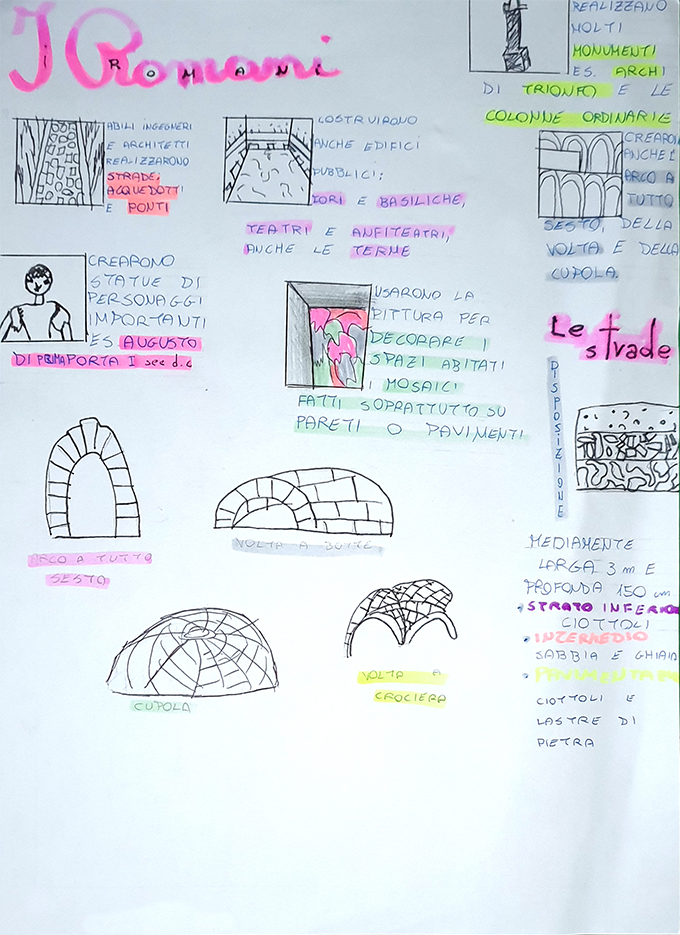 I Romani
I ROMANI
ABILI INGEGNERI
E ARCHITETTI
REALIZZARONO
STRADE,
ACQUEDOTTI
E PONTI
COSTRUIRONO
ANCHE EDIFICI
PUBBLICI:
FORI E BASILICHE,
TEATRI E ANFITEATRI,
ANCHE LE TERME
REALIZZANO
MOLTI
MONUMENTI
ES. ARCHI
DI TRIONFO E LE
COLONNE ORDINARIE
CREARONO
ANCHE L
ARCO A
TUTTO
SESTO, DELLA
VOLTA E DELLA
CUPOLA.
CREARONO
STATUE DI
PERSONAGGI
IMPORTANTI
ES AUGUSTO
DI PRIMA PORTA I sec d.c
USARONO LA
PITTURA PER
DECORARE I
SPAZI ABITATI
I MOSAICI
FATTI SOPRATTUTTO SU
PARETI O PAVIMENTI
Le strade
DISPOSIZIONE
ARCO A TUTTO
SESTO
VOLTA A BOTTE
CUPOLA
VOLTA A
CROCIERA
MEDIAMENTE
LARGA 3 m E
PROFONDA 150 cm
• STRATO INFERIO
CIOTTOLI
• INTERMEDIO
SABBIA E GHIAIA
CIOTTOLI E
LASTRE DI
PIETRA